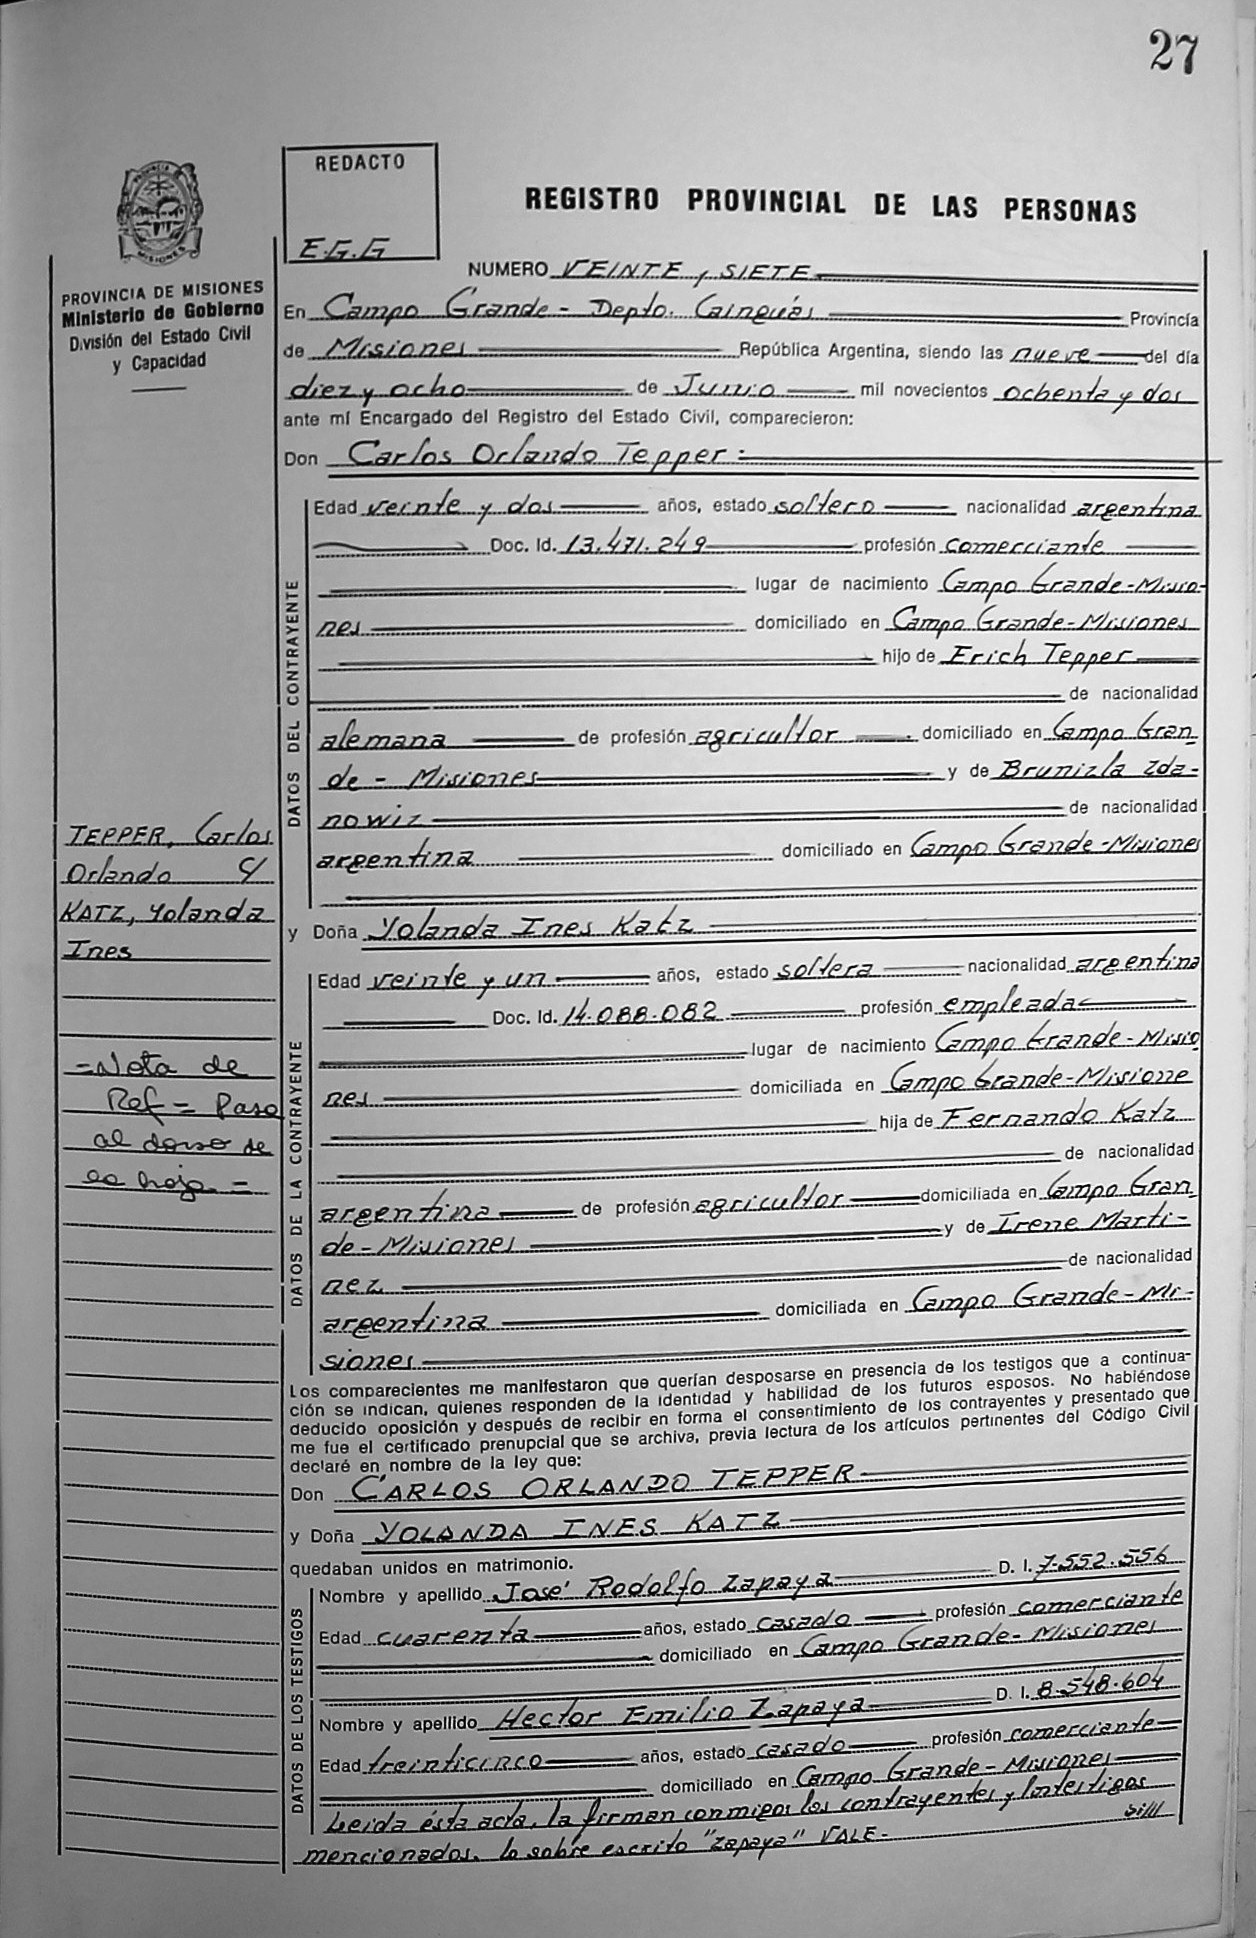 27
REDACTO
E.G.G
PROVINCIA
MISIONES
REGISTRO PROVINCIAL DE LAS PERSONAS
NUMERO VEINTE y SIETE
PROVINCIA DE MISIONES
Ministerio de Gobierno
División del Estado Civil
y Capacidad
En Campo Grande - Depto. Cainguás Provincia
de Misiones República Argentina, siendo las nueve del día
diez y ocho de Junio mil novecientos ochenta y dos
ante mí Encargado del Registro del Estado Civil, comparecieron:
Don Carlos Orlando Tepper:
DATOS DEL CONTRAYENTE
Edad veinte y dos años, estado soltero nacionalidad argentina
Doc. Id. 13.471.249 profesión comerciante
lugar de nacimiento Campo Grande-Misio-
nes domiciliado en Campo Grande-Misiones
hijo de Erich Tepper
de nacionalidad
alemana de profesión agricultor domiciliado en Campo Gran-
de - Misiones y de Brunizla Zda-
nowiz de nacionalidad
argentina domiciliado en Campo Grande-Misiones
TEPPER, Carlos
Orlando c/
KATZ, Yolanda
Ines
=Nota de
Ref = Pase
al dorso de
la hoja =
y Doña Yolanda Ines Katz
DATOS DE LA CONTRAYENTE
Edad veinte y un años, estado soltera nacionalidad argentina
Doc. Id. 14.088.082 profesión empleada
lugar de nacimiento Campo Grande-Misio
nes domiciliada en Campo Grande-Misione
hija de Fernando Katz
de nacionalidad
argentina de profesión agricultor domiciliada en Campo Gran-
de-Misiones y de Irene Marti-
nez de nacionalidad
argentina domiciliada en Campo Grande-Mi-
siones
Los comparecientes me manifestaron que querían desposarse en presencia de los testigos que a continua-
ción se indican, quienes responden de la identidad y habilidad de los futuros esposos. No habiéndose
deducido oposición y después de recibir en forma el consentimiento de los contrayentes y presentado que
me fue el certificado prenupcial que se archiva, previa lectura de los artículos pertinentes del Código Civil
declaré en nombre de la ley que:
Don CARLOS ORLANDO TEPPER
y Doña YOLANDA INES KATZ
quedaban unidos en matrimonio.
DATOS DE LOS TESTIGOS
Nombre y apellido José Rodolfo Zapaya D. I. 7.552.556
Edad cuarenta años, estado casado profesión comerciante
domiciliado en Campo Grande-Misiones
Nombre y apellido Hector Emilio Zapaya D. I. 8.548.604
Edad treinticinco años, estado casado profesión comerciante
domiciliado en Campo Grande-Misiones
Leida ésta acta, la firman conmigo los contrayentes y los testigos
mencionados. Lo sobre escrito "Zapaya" VALE.-